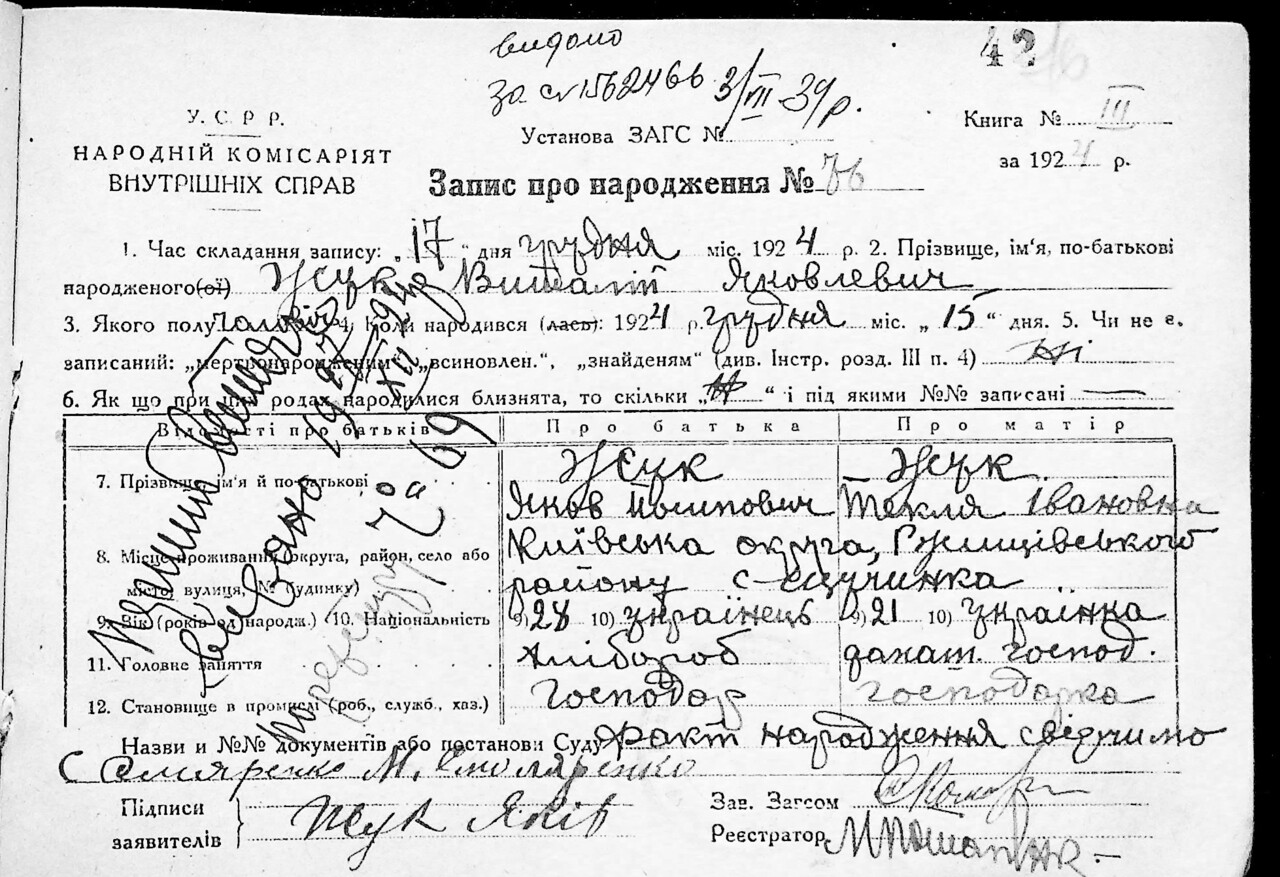 видано
за с № 1562466 3/VII-39 р.
42
У. С. Р. Р.
НАРОДНІЙ КОМІСАРІЯТ
ВНУТРІШНІХ СПРАВ
Установа ЗАГС №
Книга № III
за 1924 р.
Запис про народження № 76
1. Час складання запису: „17" дня грудня міс. 1924 р. 2. Прізвище, ім'я, по-батькові
народженого(ої) Жук Виталій Яковлевич
3. Якого полу 4. Коли народився (лась): 1924 р. грудня міс. „15" дня. 5. Чи не є.
записаний: „мертвонародженим", „всиновлен.", „знайденям" (див. Інстр. розд. III п. 4) ні
6. Як що при цих родах народилися близнята, то скільки „ " і під якими №№ записані —
Відомості про батьків Про батька Про матір
7. Прізвище, ім'я й по-батькові Жук Жук
Яков Йосипович Текля Івановна
8. Місце проживання (округа, район, село або місто, вулиця, № будинку) Київська округа, Ржищівського
району с-Щучинка
9. Вік (років од народж.) 10. Національність 9) 28 10) українець 9) 21 10) українка
11. Головне заняття Хлібороб господ.
12. Становище в промислі (роб., служб., хаз.) господар господарка
Назви и №№ документів або постанови Суду Факт народження свідчимо
М. Столяренко
Підписи
заявителів Жук Яків
Зав. Загсом
Реєстратор